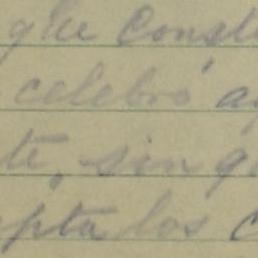 que const
celebró a
te, sin q
epta los c